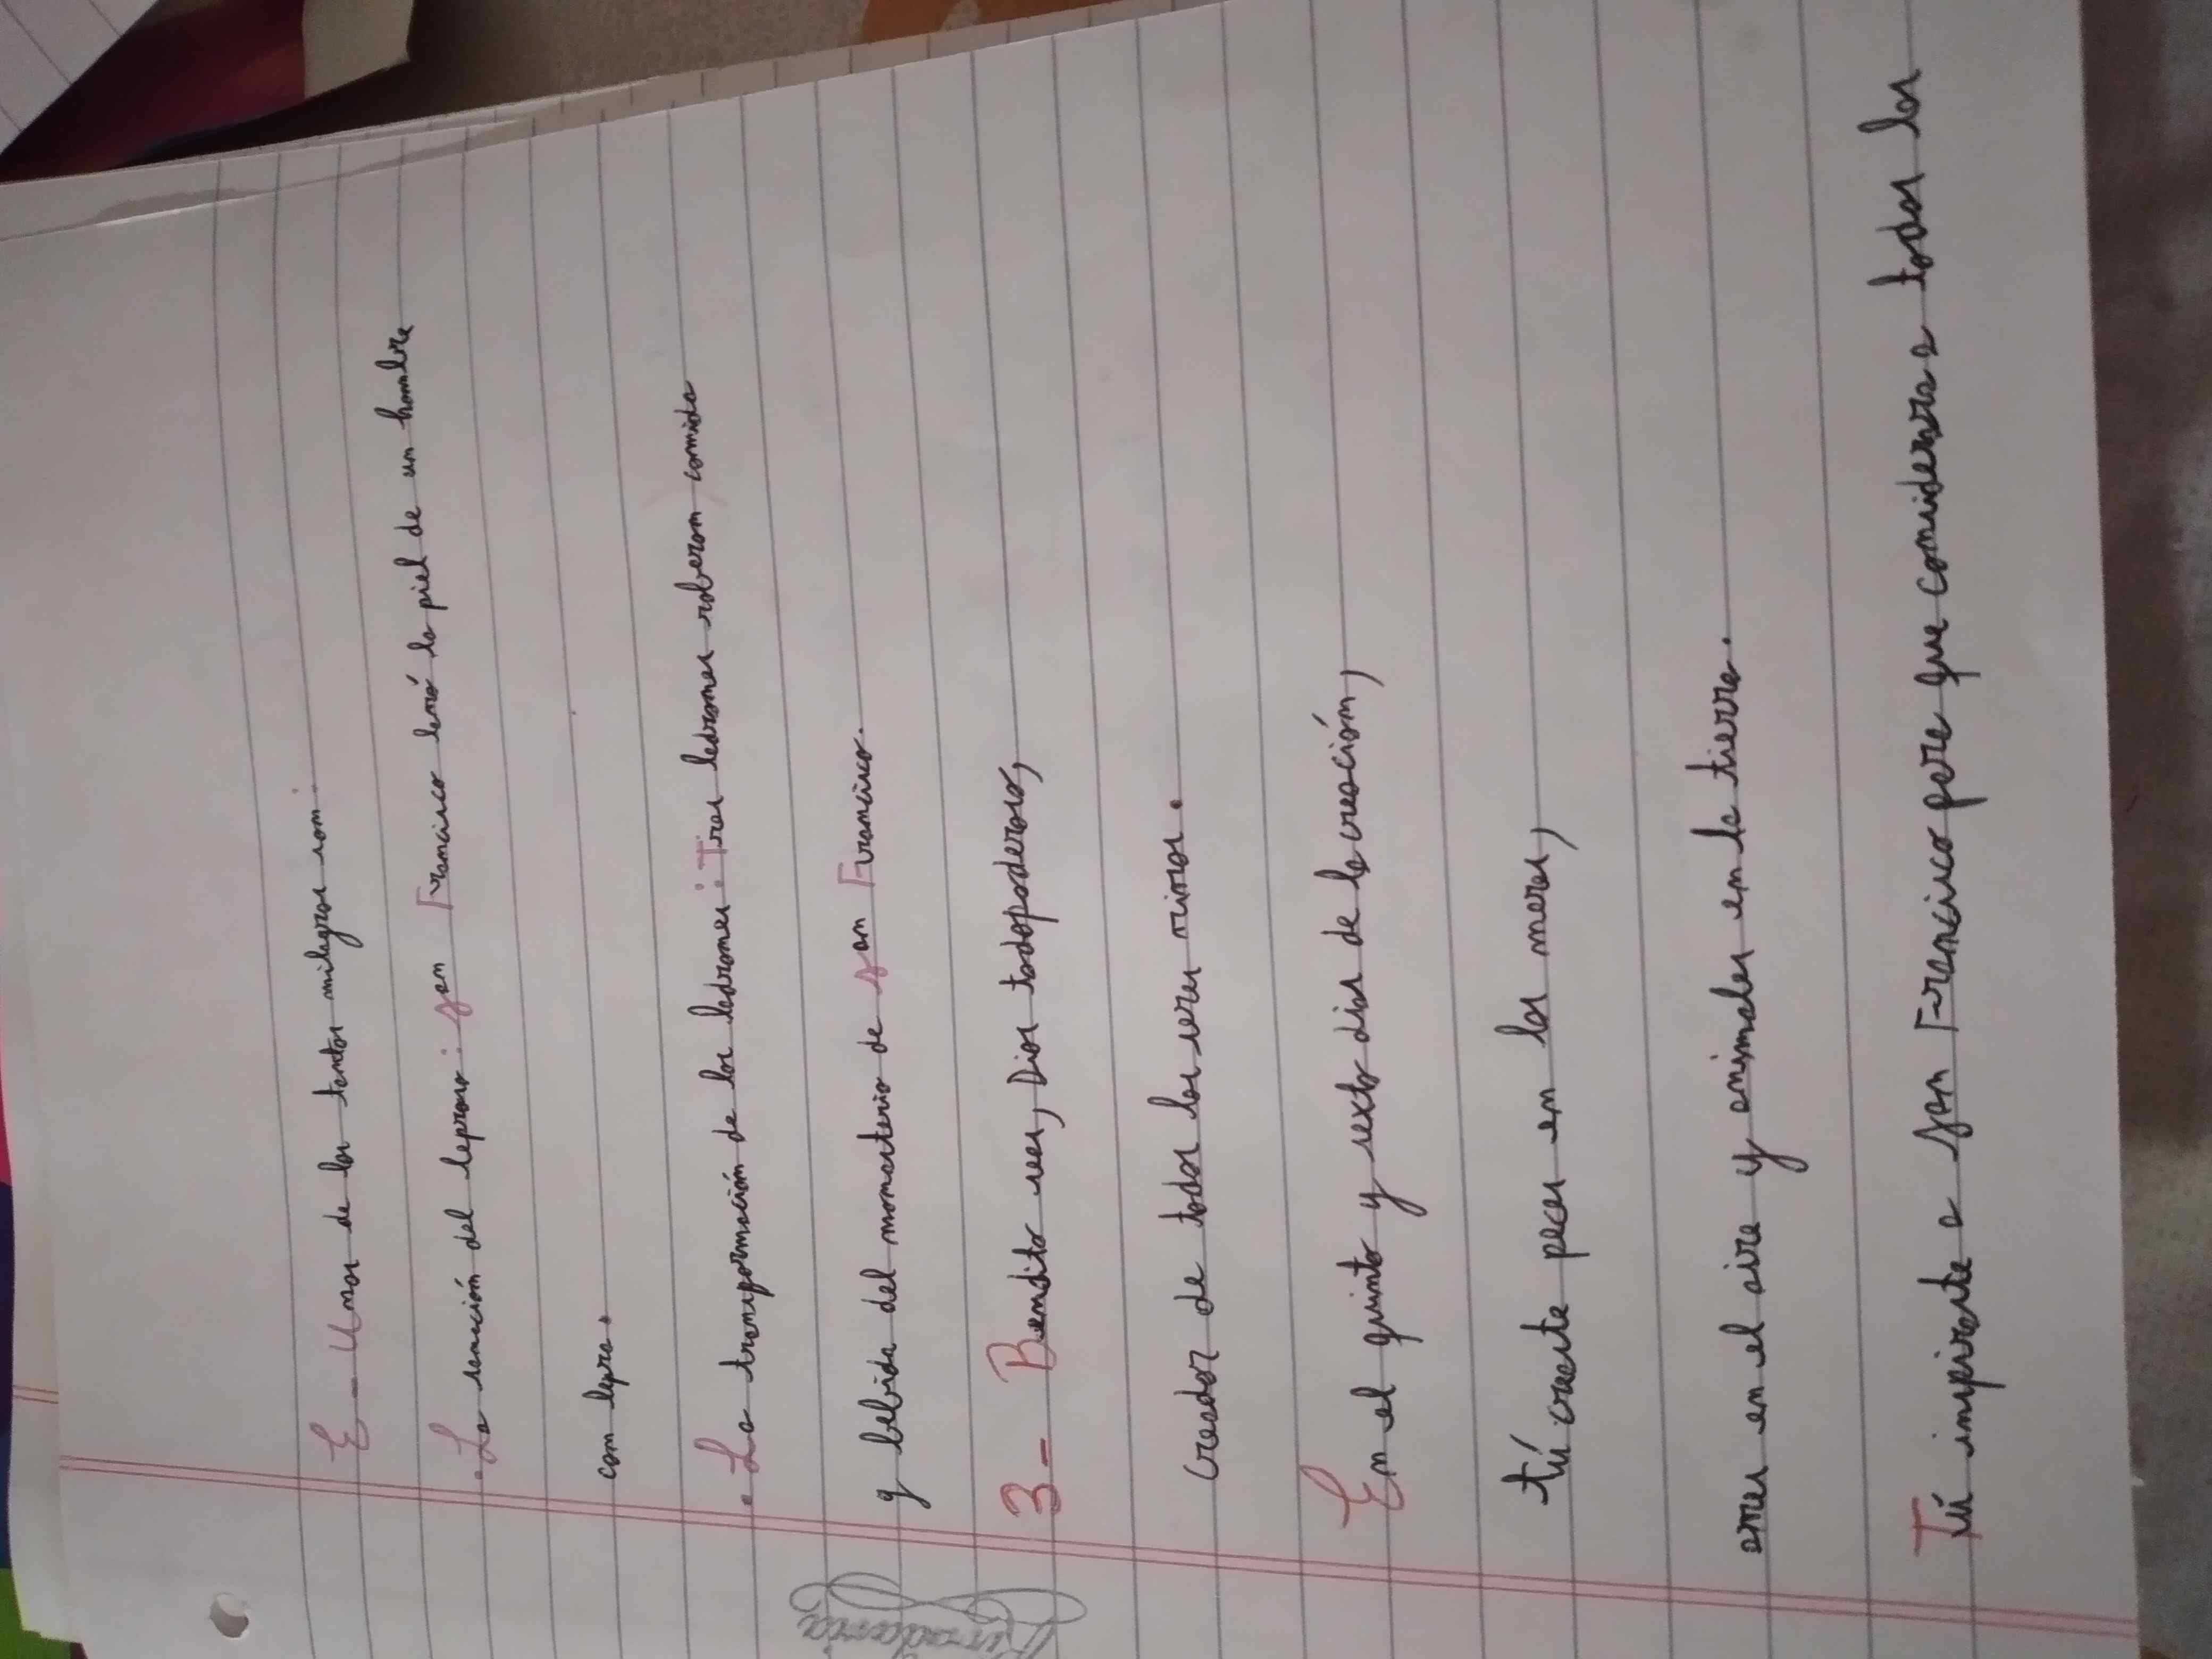 E - Unos de los tantos milagros som:
. La sanación del leproso: San Francisco lavó la piel de un hombre
con lepra.
. La transformación de los ladrones: Tres ladrones robaron comida
y bebida del monasterio de San Francisco.
3- Bendito seas, Dios todopoderoso,
creador de todos los seres vivos.
En el quinto y sexto días de la creación,
tú creaste peces en los mares,
aves en el aire y animales en la tierra.
Tú inspiraste a San Francisco para que considerara a todos los